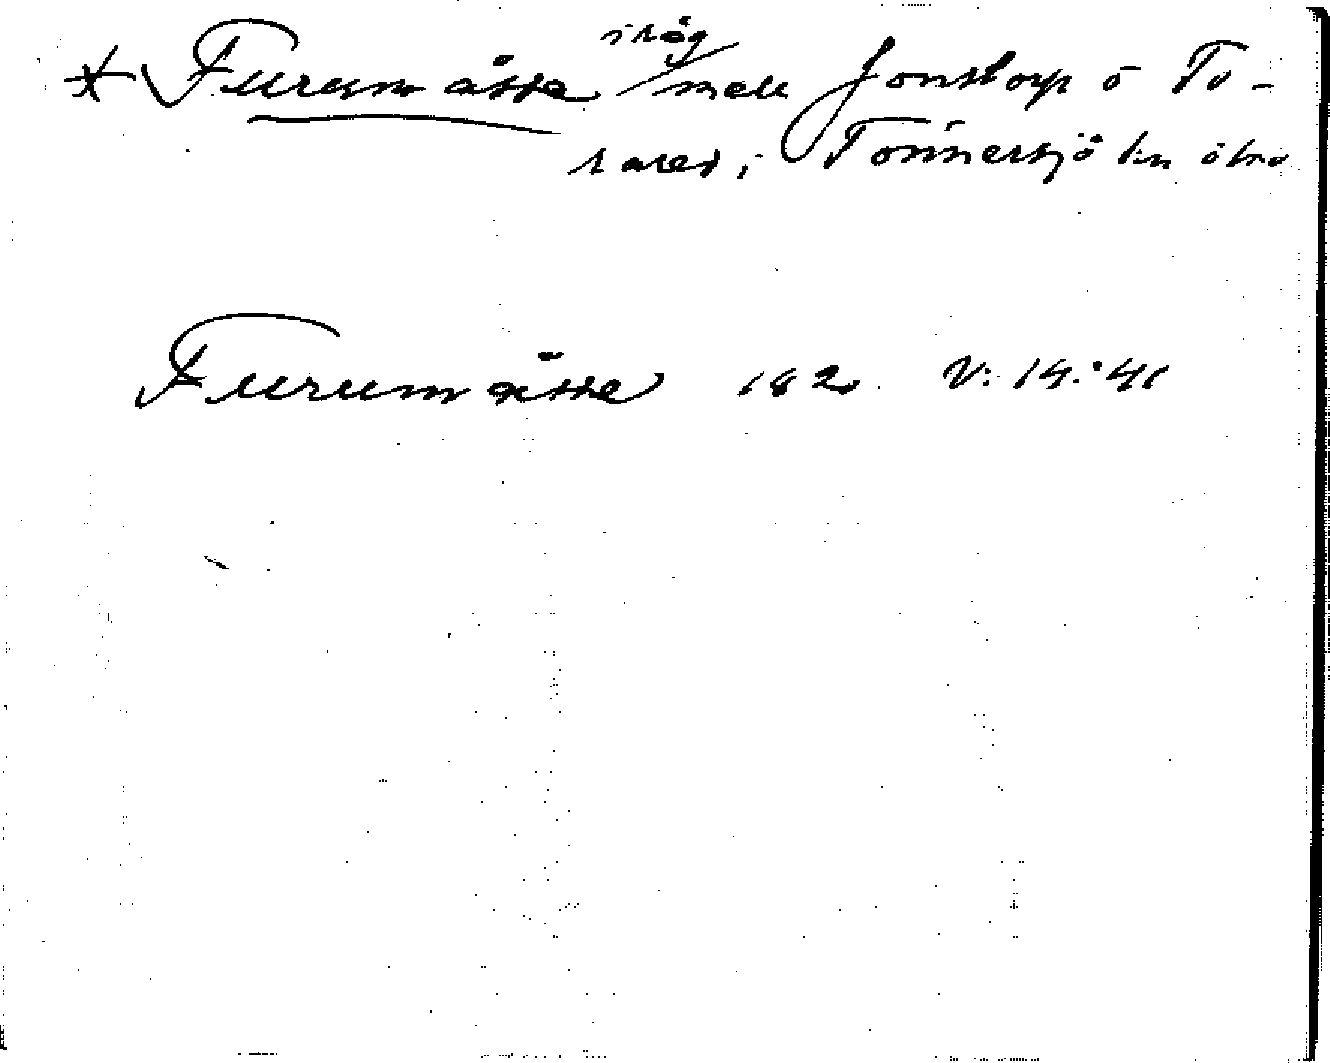 Furumåsse skog mell Jonstorp o To-
hared, Tönnersjö sn
Furumåsse 182. V: 14.'41